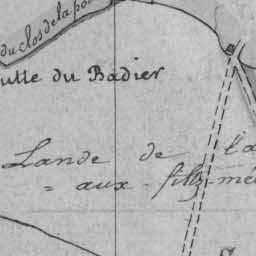 du clos de la po
utte du Badier
Lande de la
= aux - fillz - mé